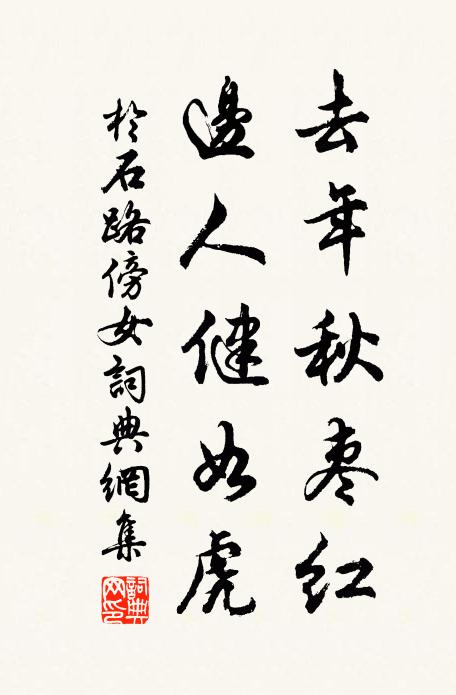 去年秋枣红
邊人健如虎
於石路傍女詞典網集
詞典網印